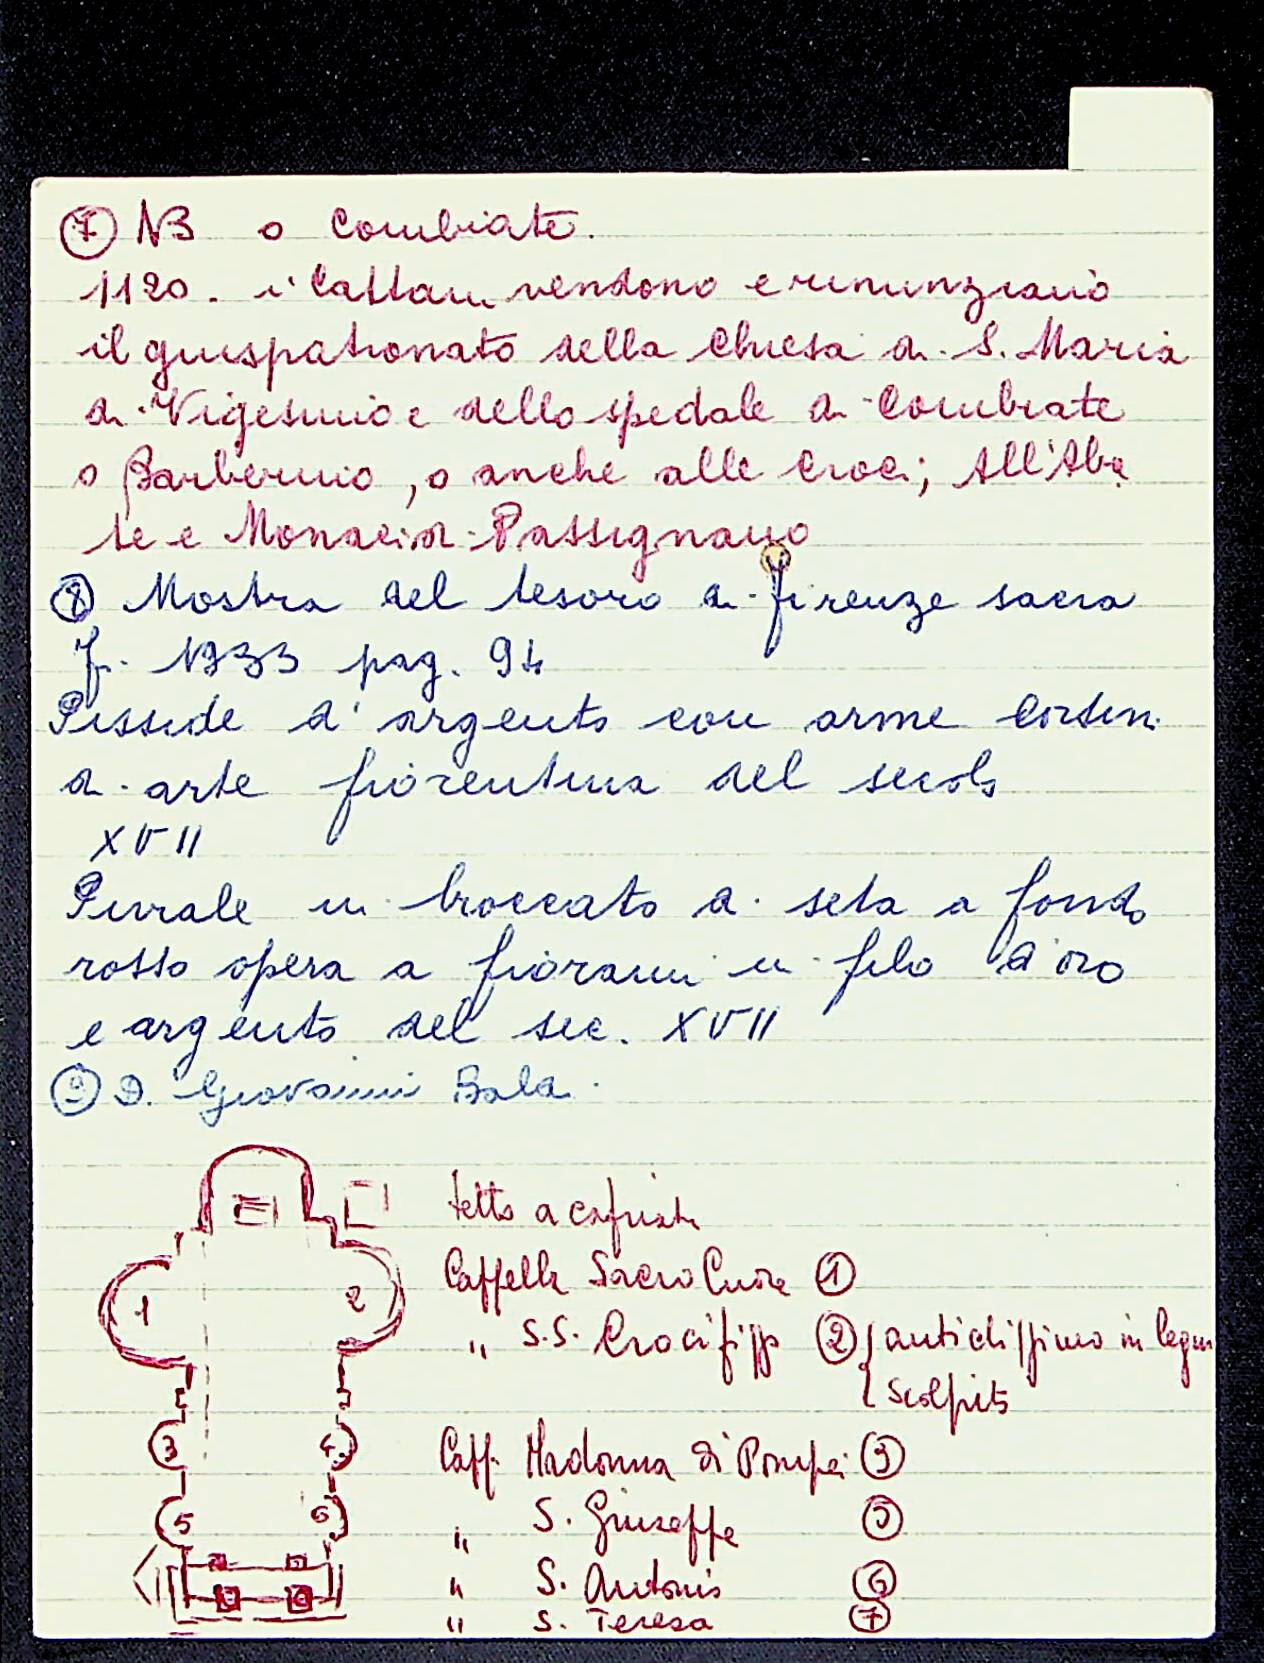 ⑦ NB o Combiate.
1120. i Cattani vendono e rinunziano
il giuspatronato della Chiesa di S. Maria
di Vigesimo e dello spedale di Combiate
o Barberino, o anche alle Croci; All'Aba
te e Monaci di Passignano
⑧ Mostra del tesoro di Firenze sacra
F. 1933 pag. 94
Pisside d'argento con arme Corsini
di arte fiorentina del secolo
XVII
Piviale in broccato di seta a fondo
rosso opera a fiorami in filo d'oro
e argento del sec. XVII
⑨ D. Giovanni
tetto a capriate
Cappella Sacro Cuore ①
" S.S. Crocifisso ② antichissimo in legno
scolpito
Capp. Madonna di Pompei ③
" S. Giuseppe ⑤
" S. Antonio ⑥
" S. Teresa ⑦
1 2
3 4
5 6